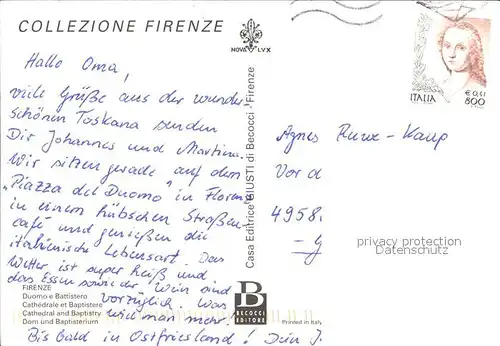 COLLEZIONE FIRENZE
NOVA LVX
Hallo Oma,
viele Grüße aus der wunder
schönen Toskana senden
Dir Johannes und Martina.
Wir sitzen gerade auf dem
"Piazza del Duomo" in Florenz
in einem hübschen Straßen
café und genießen die
italienische Lebensart. Das
Wetter ist super heiß und
das Essen sowie der Wein sind
vorzüglich. Was
will man mehr!
Bis bald in Ostfriesland! Dein J.
FIRENZE
Duomo e Battistero
Cathédrale et Baptistere
Cathedral and Baptistry
Dom und Baptisterium
Casa Editrice GIUSTI di Becocci / Firenze
B
BECOCCI
EDITORE
Printed in Italy
ITALIA
€ 0,41
800
Agnes
Vor d
4958
privacy protection
Datenschutz